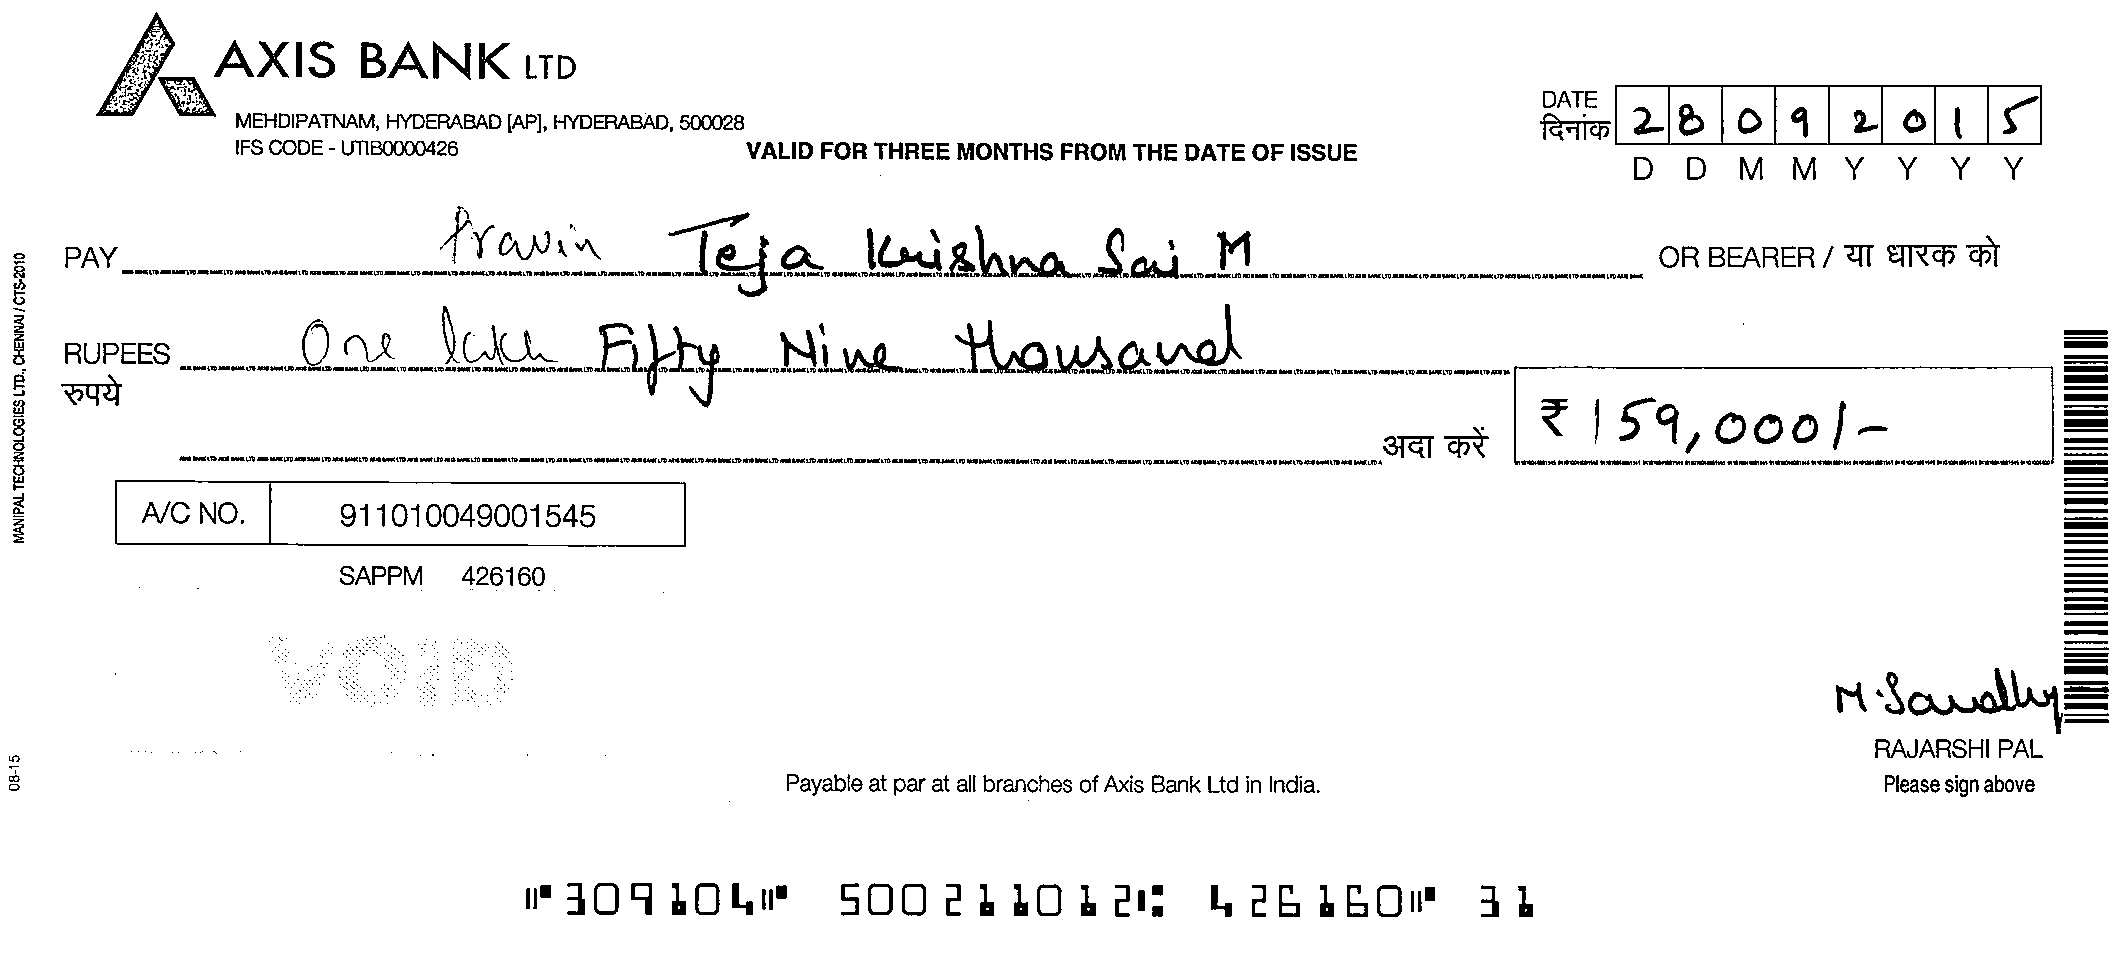 AXIS BANK LTD
MEHDIPATNAM, HYDERABAD [AP], HYDERABAD, 500028
IFS CODE - UTIB0000426
VALID FOR THREE MONTHS FROM THE DATE OF ISSUE
DATE
दिनांक 28092015
D D M M Y Y Y Y
PAY Pravin Teja Krishna Sai M OR BEARER / या धारक को
RUPEES One lakh Fifty Nine Thousand
रुपये
अदा करें ₹ 159,000/-
A/C NO. 911010049001545
SAPPM 426160
VOID
M. Sandhy
RAJARSHI PAL
Please sign above
Payable at par at all branches of Axis Bank Ltd in India.
⑈309104⑈ 500211012⑆ 426160⑈ 31
MANIPAL TECHNOLOGIES LTD., CHENNAI / CTS-2010
08-15